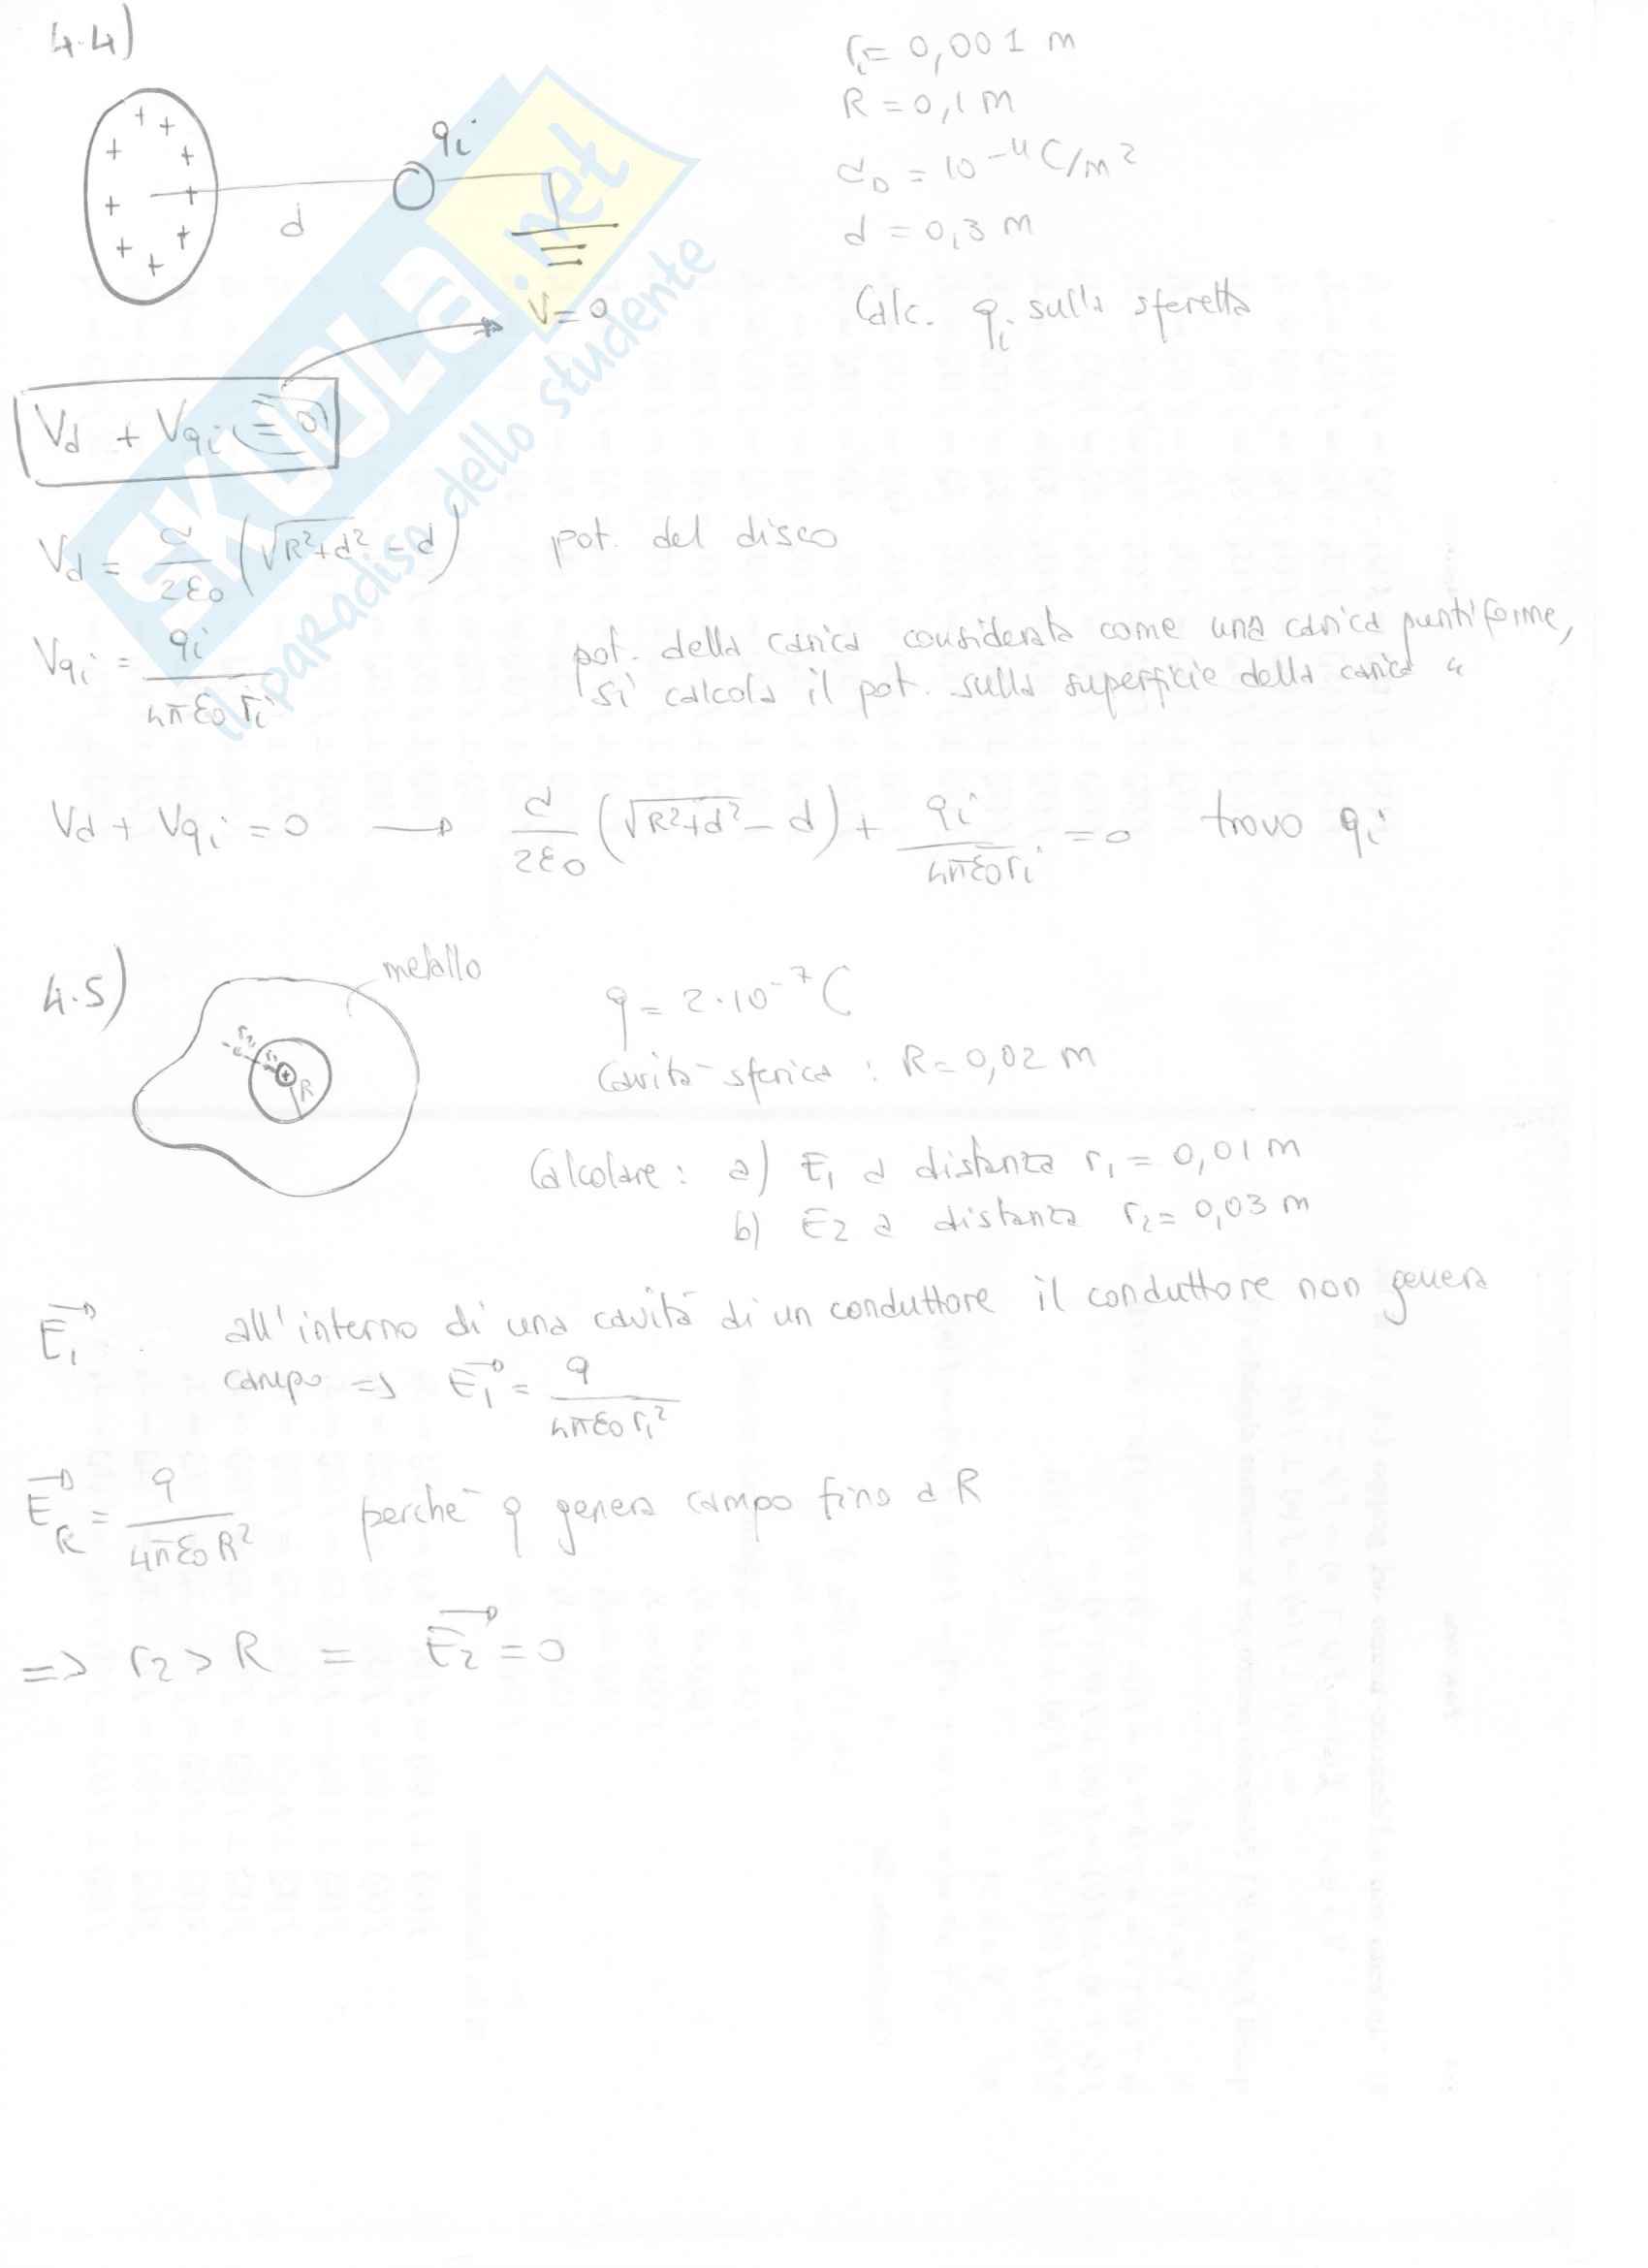 4.4)
rᵢ = 0,001 m
R = 0,1 m
σD = 10⁻⁴ C/m²
d = 0,3 m
Calc. qᵢ sulla sferetta
+ + + + + + + + + +
d
qᵢ
V=0
Vd + Vqᵢ = 0
Vd = σ/2ε₀ (√R²+d² - d) pot. del disco
Vqᵢ = qᵢ/4πε₀rᵢ pot. della carica considerata come una carica puntiforme,
si calcola il pot. sulla superficie della carica "
Vd + Vqᵢ = 0 → σ/2ε₀ (√R²+d² - d) + qᵢ/4πε₀rᵢ = 0 trovo qᵢ
4.5)
metallo
r₂ r₁
+
R
q = 2·10⁻⁷ C
Cavità sferica : R = 0,02 m
Calcolare : a) E₁ a distanza r₁ = 0,01 m
b) E₂ a distanza r₂ = 0,03 m
E₁→ all'interno di una cavità di un conduttore il conduttore non genera
campo => E₁→ = q/4πε₀r₁²
E→R = q/4πε₀R² perché q genera campo fino a R
=> r₂ > R = E₂→ = 0
SKUOLA.net
il paradiso dello studente